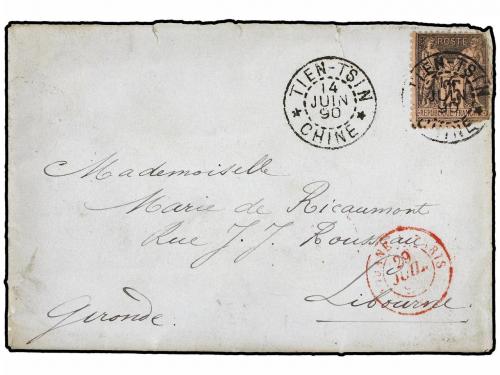 POSTE
TIEN-TSIN
14
JUIN
90
CHINE
TIEN-TSIN
JUIN
90
CHINE
Mademoiselle
Marie de Ricaumont
Rue J. J. Rousseau
29
JUIL
Libourne
Gironde.